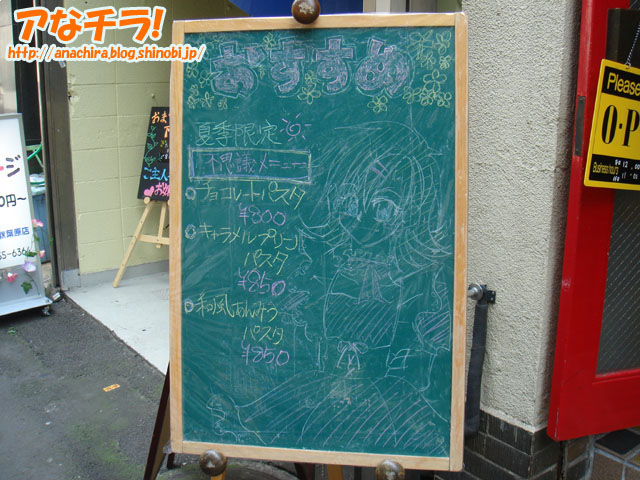 アなチラ!
http://anachira.blog.shinobi.jp/
おすすめ
夏季限定
不思議メニュー
チョコレートパスタ
¥800
キャラメルプリン
パスタ
¥850
和風あんみつ
パスタ
¥850
Please
O・P
Business hours
ジ
0円~
秋葉原店
55-636
ご主人